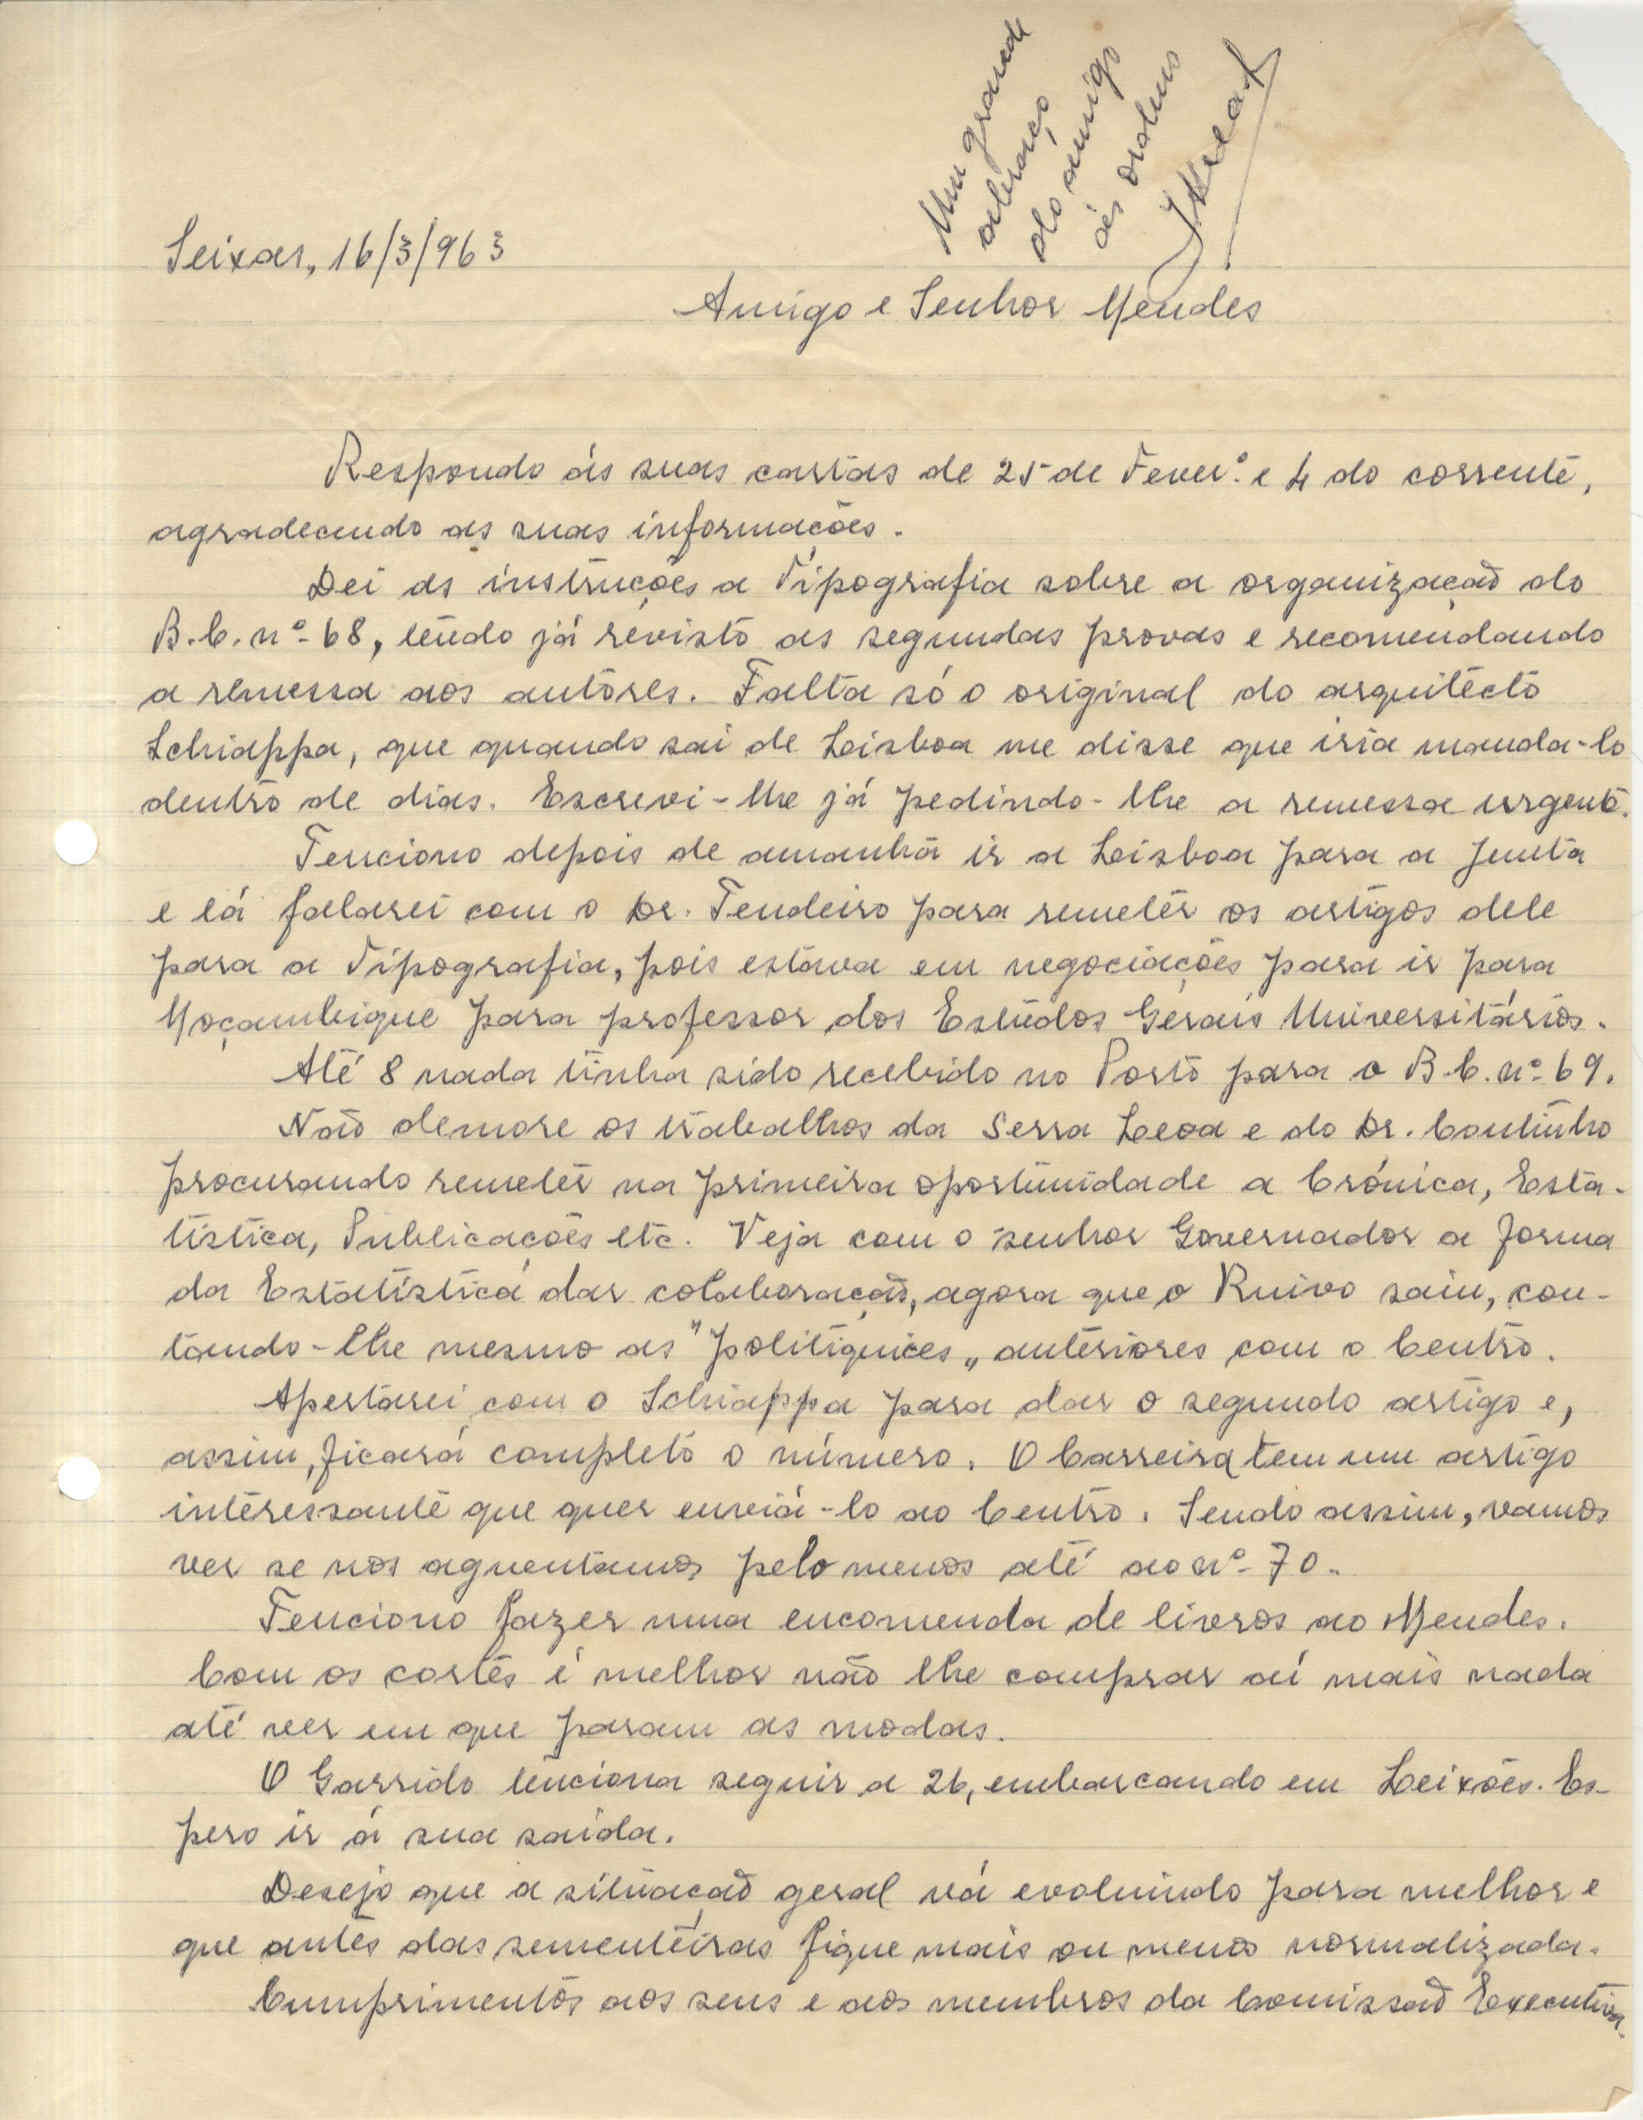 Um grande
abraço
do amigo
às ordens
Seixas, 16/3/963
Amigo e Senhor Mendes
Respondo ás suas cartas de 25 de Fever.º e 4 do corrente,
agradecendo as suas informações.
Dei as instruções a Tipografia sobre a organização do
B.C. nº 68, tendo já revisto as segundas provas e recomendando
a remessa aos autores. Falta só o original do arquitecto
Schiappa, que quando sai de Lisboa me disse que iria manda-lo
dentro de dias. Escrevi-lhe já pedindo-lhe a remessa urgente.
Tenciono depois de amanhã ir a Lisboa para a Junta
e lá falarei com o Dr. Tendeiro para remeter os artigos dele
para a Tipografia, pois estava em negociações para ir para
Moçambique para professor dos Estudos Gerais Universitários.
Até 8 nada tinha sido recebido no Porto para o B.C. nº 69.
Não demore os trabalhos da Serra Leoa e do Dr. Coutinho
procurando remeter na primeira oportunidade a Crónica, Esta-
tistica, Publicações etc. Veja com o senhor Governador a forma
da Estatística dar colaboração, agora que o Ruivo saiu, con-
tando-lhe mesmo as "politiquices" anteriores com o Centro.
Apertarei com o Schiappa para dar o segundo artigo e,
assim, ficará completo o número. O Carreira tem um artigo
interessante que quer enviá-lo ao Centro. Sendo assim, vamos
ver se nos aguentamos pelo menos até ao nº 70.
Tenciono fazer uma encomenda de livros ao Mendes.
Com os cortes é melhor não lhe comprar aí mais nada
até ver em que param as modas.
O Garrido tenciona seguir a 26, embarcando em Leixões. Es-
pero ir á sua saída.
Desejo que a situação geral vá evoluindo para melhor e
que antes das sementeiras fique mais ou menos normalizada.
Cumprimentos aos seus e aos membros da Comissão Executiva.